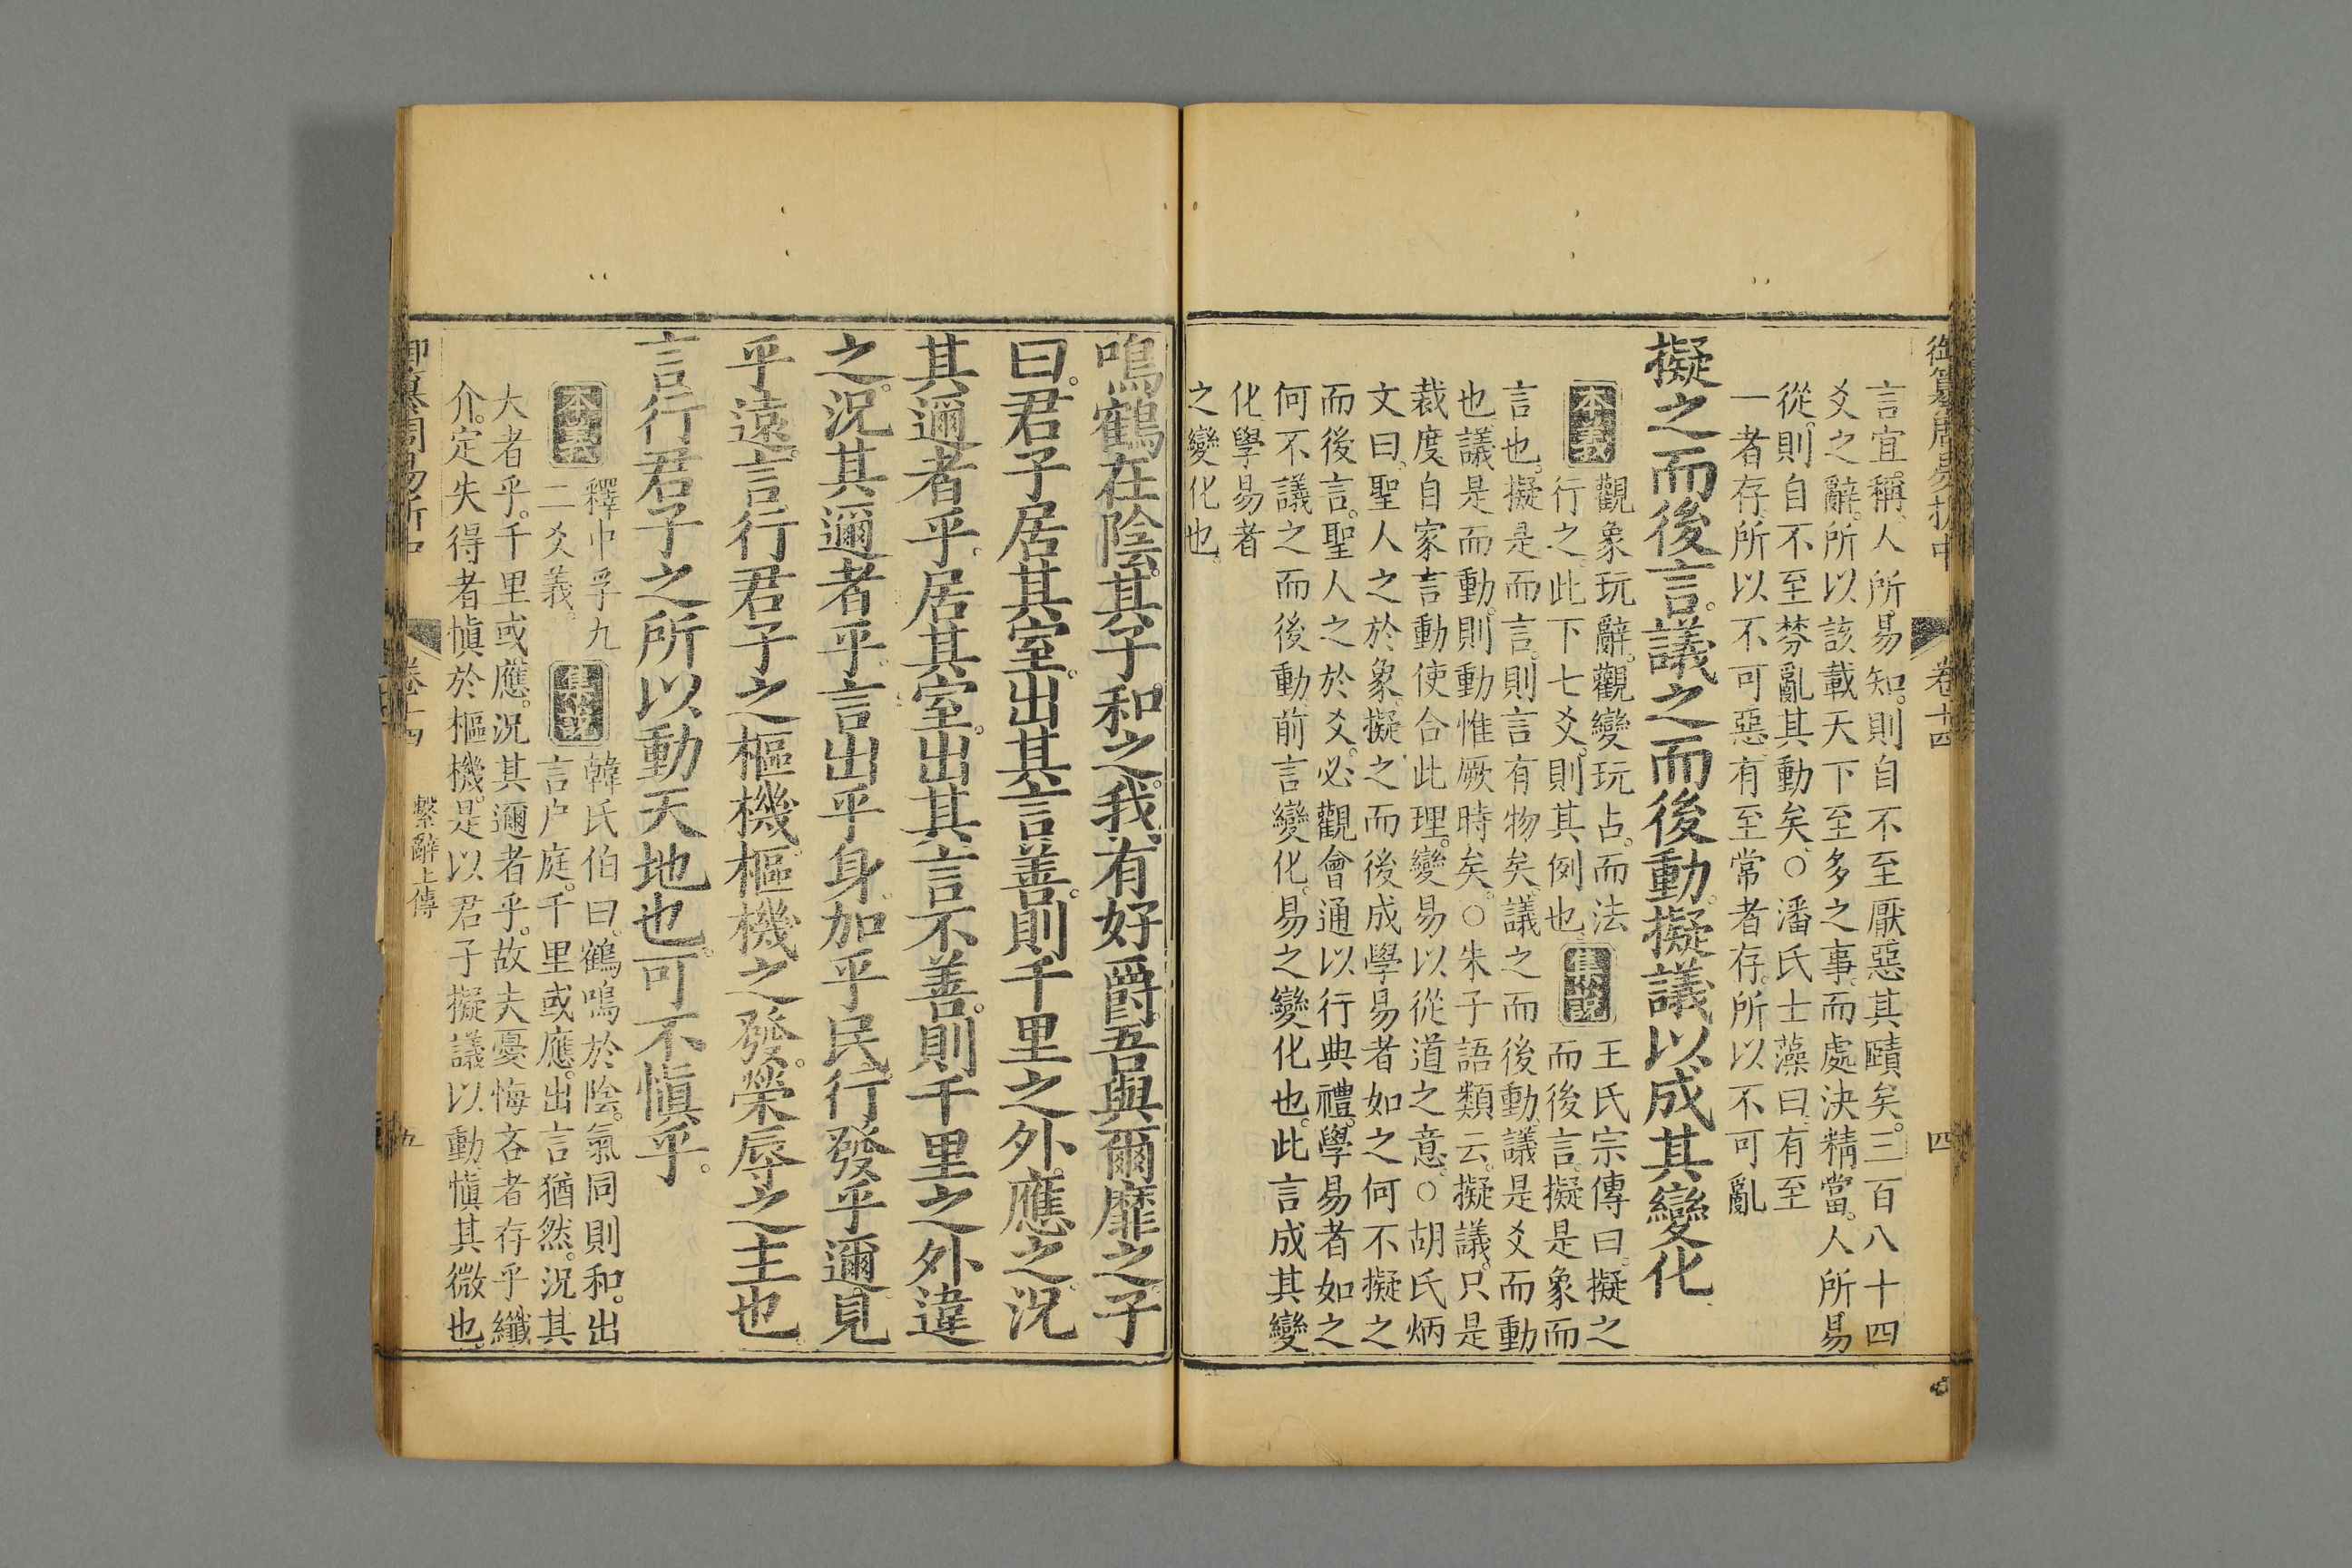 御纂周易折中 卷十四 四
言宜稱人所易知。則自不至厭惡其賾矣。三百八十四
爻之辭。所以該載天下至多之事。而處決精當。人所易
從。則自不至棼亂其動矣。○潘氏士藻曰。有至
一者存。所以不可惡。有至常者存。所以不可亂
擬之而後言。議之而後動。擬議以成其變化。
本義 觀象玩辭。觀變玩占。而法
行之。此下七爻。則其例也。
集說 王氏宗傳曰。擬之
而後言。擬是象而
言也。擬是而言。則言有物矣。議之而後動。議是爻而動
也。議是而動。則動惟厥時矣。○朱子語類云。擬議。只是
裁度自家言動使合此理。變易以從道之意。○胡氏炳
文曰。聖人之於象。擬之而後成。學易者如之何不擬之
而後言。聖人之於爻。必觀會通以行典禮。學易者如之
何不議之而後動。前言變化。易之變化也。此言成其變
化。學易者
之變化也。
鳴鶴在陰。其子和之。我有好爵。吾與爾靡之。子
曰。君子居其室。出其言善。則千里之外應之。況
其邇者乎。居其室。出其言不善。則千里之外違
之。況其邇者乎。言出乎身。加乎民。行發乎邇。見
乎遠。言行君子之樞機。樞機之發。榮辱之主也。
言行君子之所以動天地也。可不慎乎。
本義 釋中孚九
二爻義。
集說 韓氏伯曰。鶴鳴於陰。氣同則和。出
言戶庭。千里或應。出言猶然。況其
大者乎。千里或應。況其邇者乎。故夫憂悔吝者存乎纖
介。定失得者慎於樞機。是以君子擬議以動。慎其微也。
御纂周易折中 卷十四 繫辭上傳 五